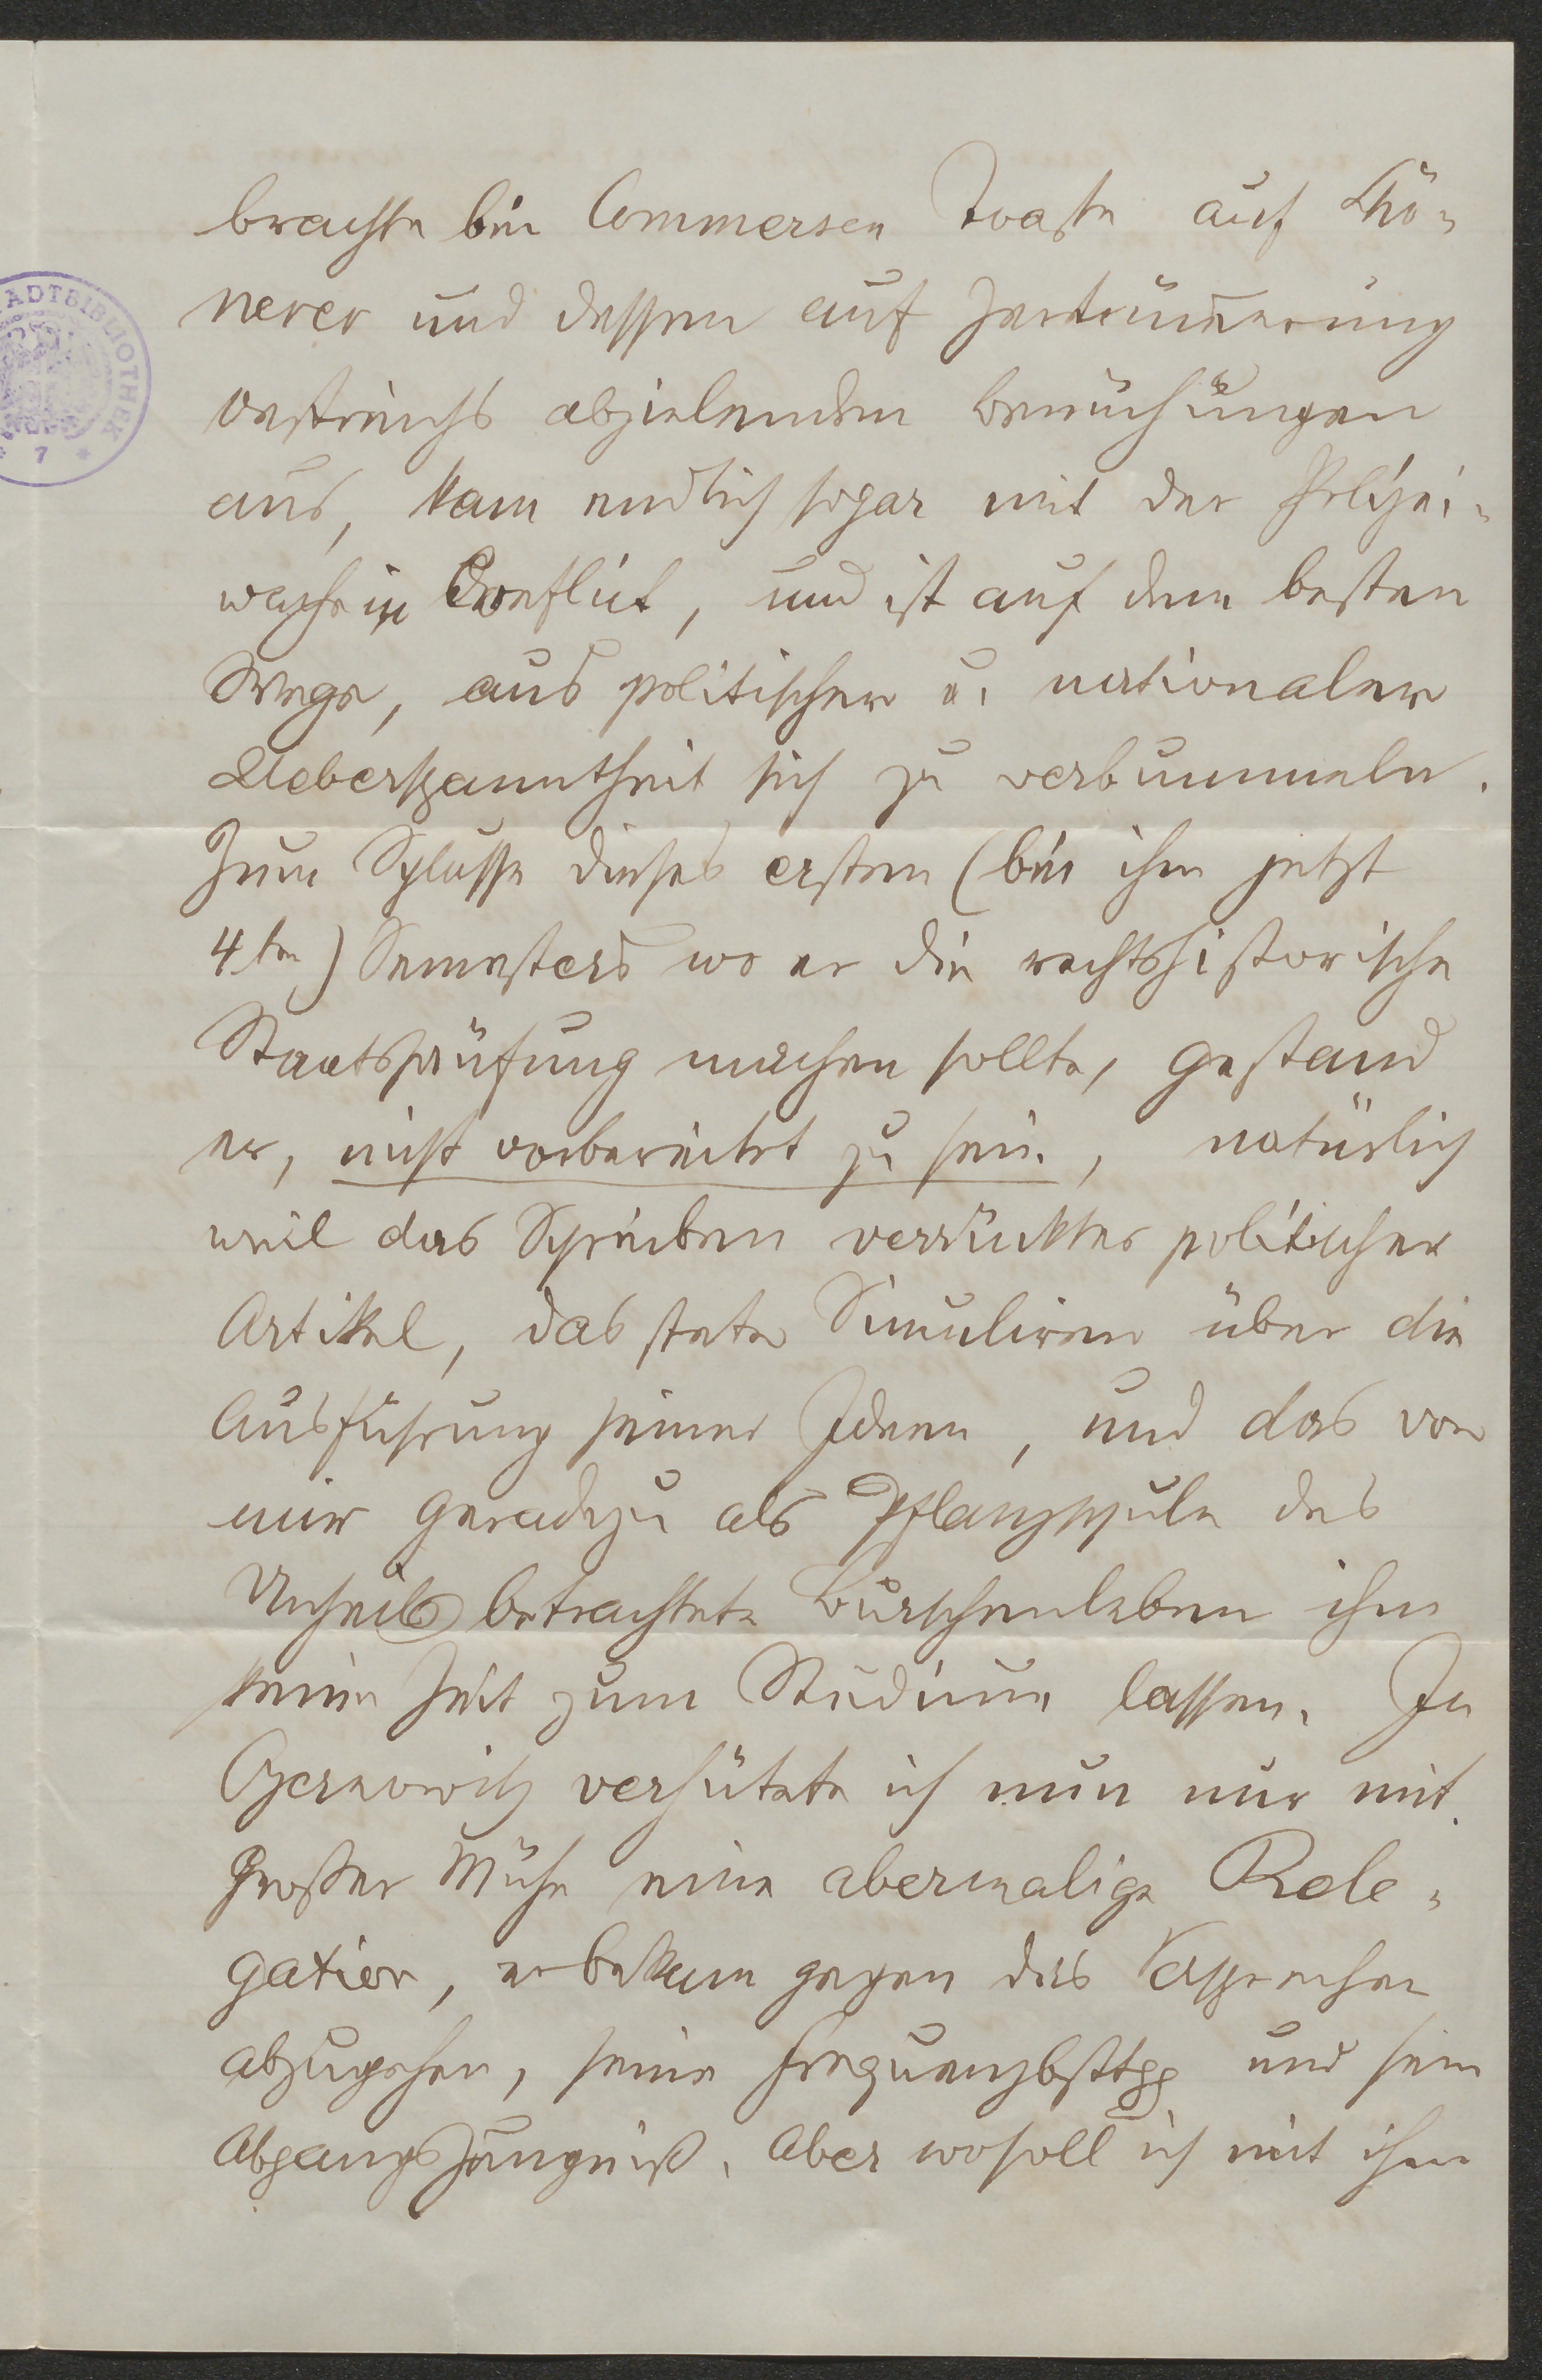 brachte bei Commersen Toaste auf Schö-
nerer und dessen auf Zertrümmerung
Oestreichs abzielenden Bemühungen
aus, kam endlich sogar mit der Polizei-
wache in Conflict, und ist auf dem besten
Wege, aus politischer u. nationaler
Ueberspanntheit sich zu verbummeln.
Zum Schlusse dieses ersten (bei ihm jetzt
4ten) Semesters wo er die rechtshistorische
Staatsprüfung machen sollte, gestand
er, nicht vorbereitet zu sein, natürlich
weil das Schreiben verrückter politischer
Artikel, das stete Simuliren über die
Ausführung seiner Ideen, und das von
mir geradezu als Pflanzschule des
Unheils betrachtete Burschenleben ihm
keine Zeit zum Studium lassen. In
Czernowitz verhütete ich nun nur mit
großer Mühe eine abermalige Rele-
gation, er bekam gegen das Versprechen
abzugehen, seine Frequenzbsttgg und sein
Abgangszeugniß. Aber wo soll ich mit ihm
ADTBIBLIOTHEK
* 7 *